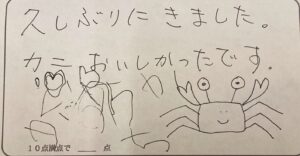 久しぶりにきました。
カニおいしかったです。
10点満点で 点